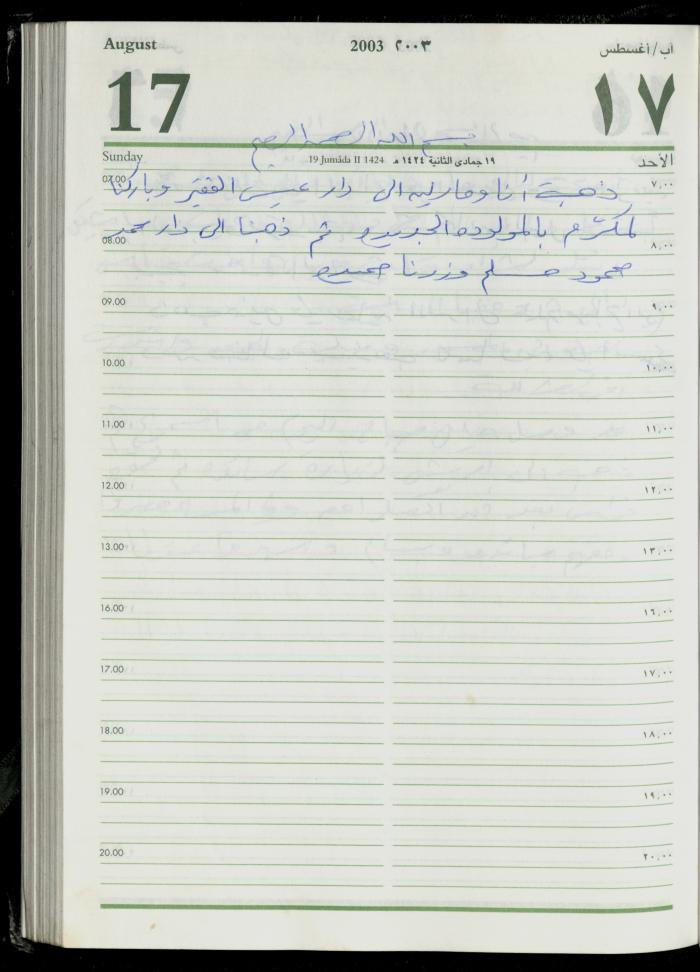 August 2003 ٢٠٠٣ آب/أغسطس
17 ١٧
بسم الله الرحمن الرحيم
Sunday 19 Jumâda II 1424 ١٩ جمادى الثانية ١٤٢٤ هـ الأحد
07.00 ٧,٠٠
ذهبت أنا وماريه الى دار عيسى الفقير وباركنا
لمكرم بالمولوده الجديده ثم ذهبنا الى دار محمد
08.00 ٨,٠٠
محمود مسلم وزرنا حميده
09.00 ٩,٠٠
10.00 ١٠,٠٠
11.00 ١١,٠٠
12.00 ١٢,٠٠
13.00 ١٣,٠٠
16.00 ١٦,٠٠
17.00 ١٧,٠٠
18.00 ١٨,٠٠
19.00 ١٩,٠٠
20.00 ٢٠,٠٠